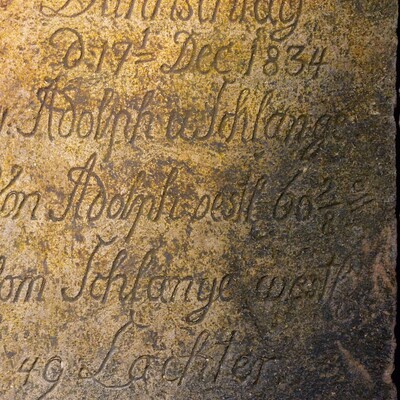 Durchschlag
D. 19t Dec 1834
Adolph u. Schlange
Von Adolph oestl. 60 2/8
vom Schlange westl
49 Lachter.